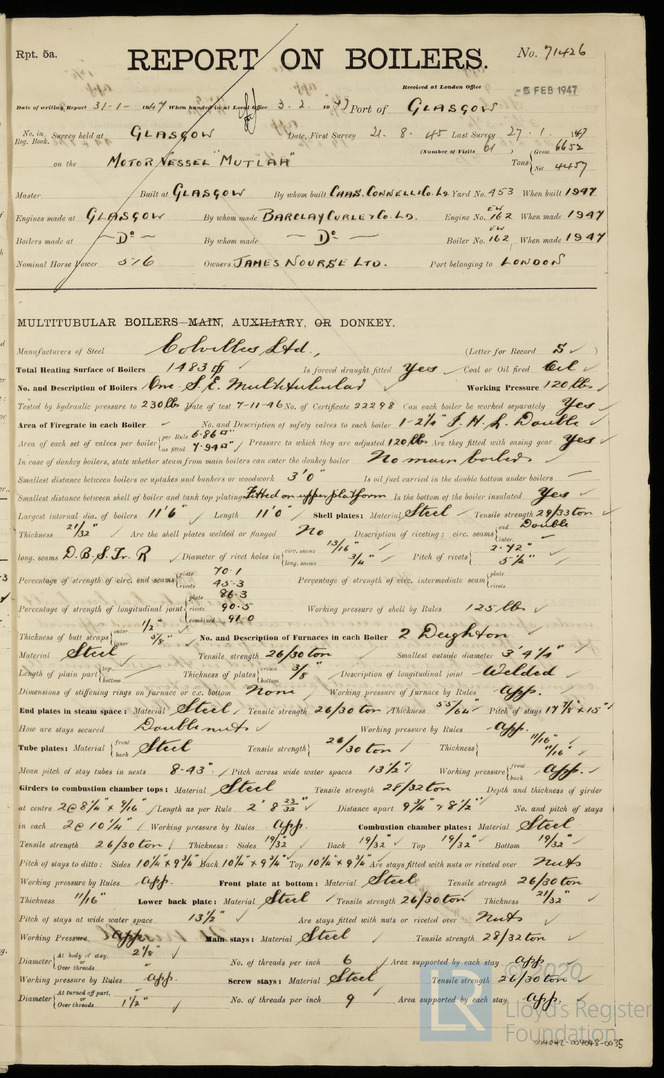 Rpt. 5a.
REPORT ON BOILERS.
No. 71426
Received at London Office
5 FEB 1947
Date of writing Report 31-1- 1947 When handed in at Local Office 3.2. 1947 Port of GLASGOW
No. in Reg. Book. Survey held at GLASGOW Date, First Survey 21.8.45 Last Survey 27.1.1947
(Number of Visits 61) Gross 6652
on the MOTOR VESSEL "MUTLAH" Tons Net 4457
Master Built at GLASGOW By whom built CHAS. CONNELL & Co. Ld Yard No. 453 When built 1947
Engines made at GLASGOW By whom made BARCLAY CURLE & Co. LD. Engine No. EW 162 When made 1947
Boilers made at - Do - By whom made - Do - Boiler No. EW 162 When made 1947
Nominal Horse Power 516 Owners JAMES NOURSE LTD. Port belonging to LONDON
MULTITUBULAR BOILERS MAIN, AUXILIARY, OR DONKEY.
Manufacturers of Steel Colvilles Ltd., (Letter for Record S)
Total Heating Surface of Boilers 1483 Is forced draught fitted Yes Coal or Oil fired Oil
No. and Description of Boilers One S.E. Multitubular Working Pressure 120 lb.
Tested by hydraulic pressure to 230 lb Date of test 7-11-46 No. of Certificate 22298 Can each boiler be worked separately Yes
Area of Firegrate in each Boiler No. and Description of safety valves to each boiler 1-2¼" I.H.L. Double
Area of each set of valves per boiler per Rule 6.86□" as fitted 7.94□" Pressure to which they are adjusted 120 lb. Are they fitted with easing gear Yes
In case of donkey boilers, state whether steam from main boilers can enter the donkey boiler No main boilers
Smallest distance between boilers or uptakes and bunkers or woodwork 3'0" Is oil fuel carried in the double bottom under boilers —
Smallest distance between shell of boiler and tank top plating Fitted on upper platform Is the bottom of the boiler insulated Yes
Largest internal dia. of boilers 11'6" Length 11'0" Shell plates: Material Steel Tensile strength 29/33 ton
Thickness 21/32" Are the shell plates welded or flanged No Description of riveting: circ. seams end Double inter. —
long. seams D.B.S. Tr. R Diameter of rivet holes in circ. seams 13/16" long. seams 3/4" Pitch of rivets 2.72" 5½"
Percentage of strength of circ. end seams plate 70.1 rivets 45.3 Percentage of strength of circ. intermediate seam plate rivets
Percentage of strength of longitudinal joint plate 86.3 rivets 90.5 combined 91.0 Working pressure of shell by Rules 125 lb
Thickness of butt straps outer 1/2" inner 5/8" No. and Description of Furnaces in each Boiler 2 Deighton
Material Steel Tensile strength 26/30 ton Smallest outside diameter 3'4¼"
Length of plain part top bottom Thickness of plates crown bottom 3/8" Description of longitudinal joint Welded
Dimensions of stiffening rings on furnace or c.c. bottom None Working pressure of furnace by Rules App.
End plates in steam space: Material Steel Tensile strength 26/30 ton Thickness 55/64" Pitch of stays 17⅞ x 15"
How are stays secured Double nuts Working pressure by Rules App.
Tube plates: Material front back Steel Tensile strength 26/30 ton Thickness 11/16" 11/16"
Mean pitch of stay tubes in nests 8.43" Pitch across wide water spaces 13½" Working pressure front back App.
Girders to combustion chamber tops: Material Steel Tensile strength 28/32 ton Depth and thickness of girder
at centre 2 @ 8¼" x 9/16" Length as per Rule 2' 8 23/32" Distance apart 9¾" & 8½" No. and pitch of stays
in each 2 @ 10¼" Working pressure by Rules App. Combustion chamber plates: Material Steel
Tensile strength 26/30 ton Thickness: Sides 19/32 Back 19/32" Top 19/32" Bottom 19/32"
Pitch of stays to ditto: Sides 10¼" x 9¾" Back 10¼" x 9¾" Top 10¼" x 9¾" Are stays fitted with nuts or riveted over Nuts
Working pressure by Rules App. Front plate at bottom: Material Steel Tensile strength 26/30 ton
Thickness 11/16" Lower back plate: Material Steel Tensile strength 26/30 ton Thickness 21/32"
Pitch of stays at wide water space 13½" Are stays fitted with nuts or riveted over Nuts
Working Pressure App. Main stays: Material Steel Tensile strength 28/32 ton
Diameter At body of stay, or Over threads 2⅛" No. of threads per inch 6 Area supported by each stay App
Working pressure by Rules App. Screw stays: Material Steel Tensile strength 26/30 ton
Diameter At turned off part, or Over threads 1½" No. of threads per inch 9 Area supported by each stay App.
LR © 2020
Lloyd's Register
Foundation
004042-004048-0035